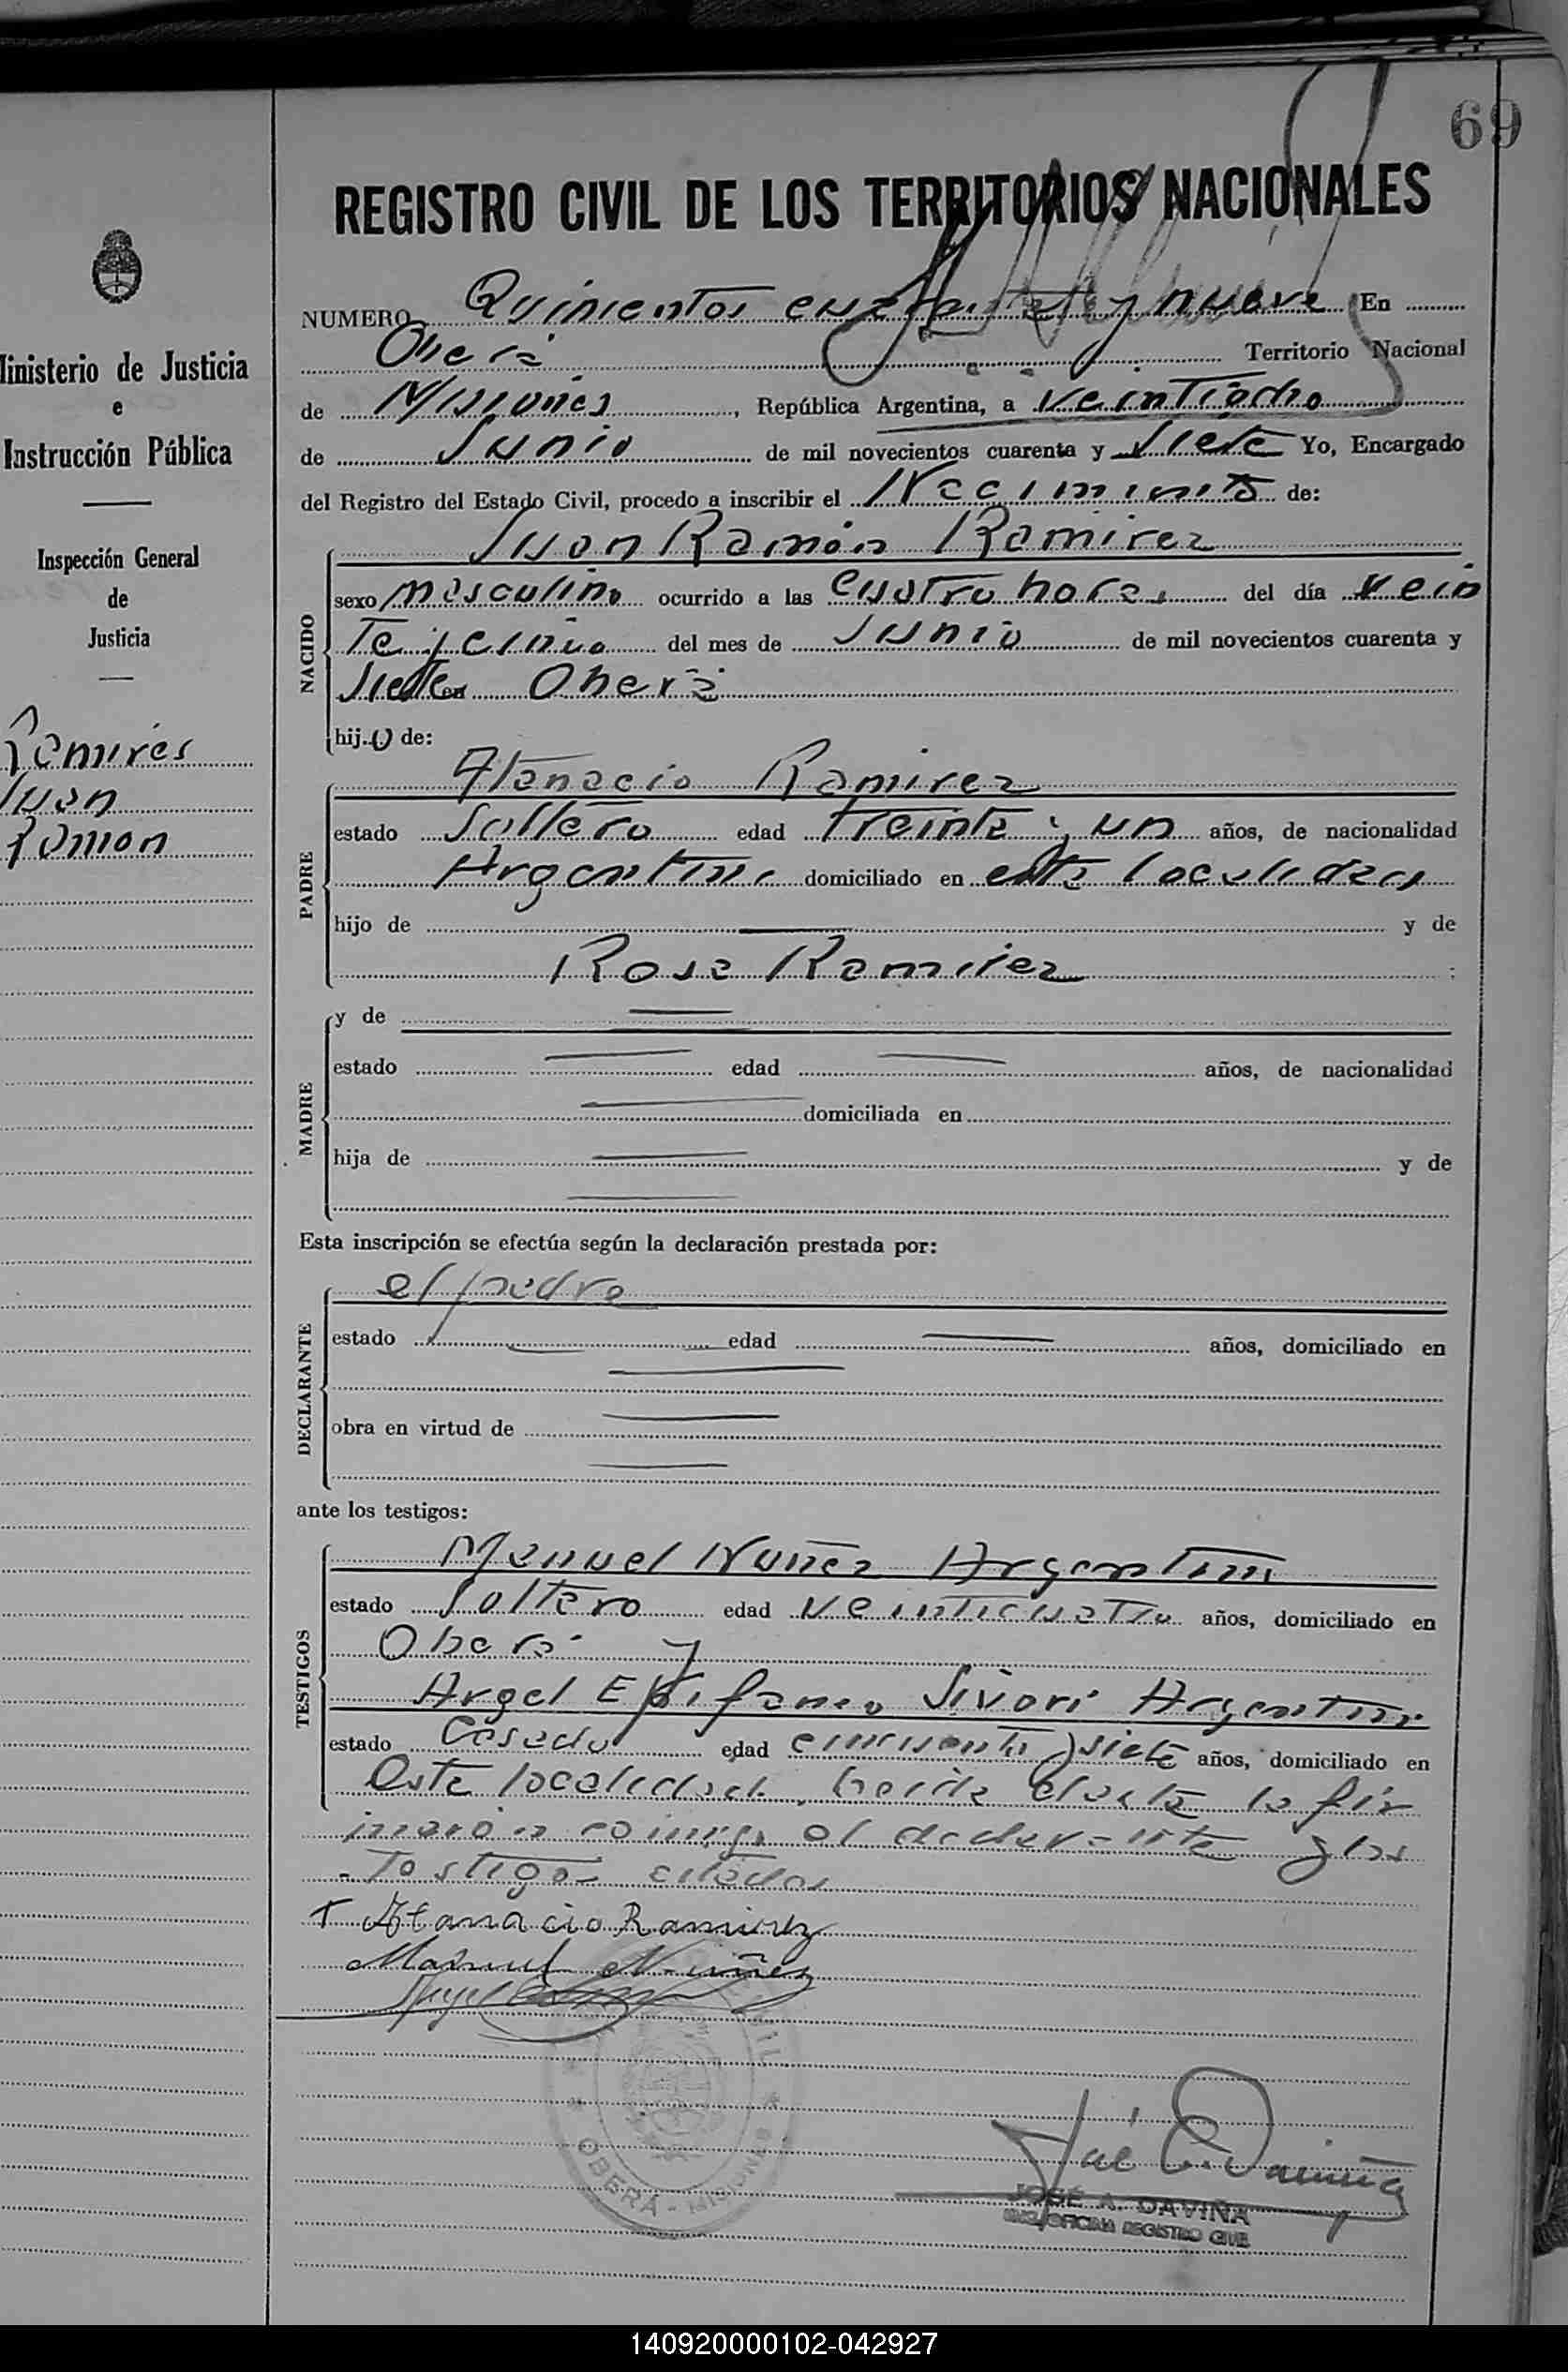 69
REGISTRO CIVIL DE LOS TERRITORIOS NACIONALES
Ministerio de Justicia
e
Instrucción Pública
Inspección General
de
Justicia
Ramires
Juan
Ramon
NUMERO Quinientos cuarenta y nueve En
Oberá Territorio Nacional
de Misiones, República Argentina, a veintiocho
de Junio de mil novecientos cuarenta y siete Yo, Encargado
del Registro del Estado Civil, procedo a inscribir el Nacimiento de:
NACIDO
Juan Ramón Ramirez
sexo masculino ocurrido a las cuatro horas del día vein
te y cinco del mes de Junio de mil novecientos cuarenta y
siete en Oberá
hijo de:
PADRE
Atanacio Ramirez
estado Soltero edad treinta y un años, de nacionalidad
Argentina domiciliado en esta localidad
hijo de y de
Rosa Ramirez
MADRE
y de
estado edad años, de nacionalidad
domiciliada en
hija de y de
Esta inscripción se efectúa según la declaración prestada por:
DECLARANTE
el padre
estado edad años, domiciliado en
obra en virtud de
ante los testigos:
TESTIGOS
Manuel Nuñez Argentino
estado Soltero edad veinticuatro años, domiciliado en
Oberá y
Angel Epifanio Sivori Argentino
estado Casado edad cincuenta y siete años, domiciliado en
esta localidad. Leida el acta la fir
maron conmigo el declarante y los
testigos citados
Atanacio Ramirez
Manuel Nuñez
Angel
OBERÁ - MISIONES
JOSÉ A. DAVIÑA
ENC. OFICINA REGISTRO CIVIL
140920000102-042927